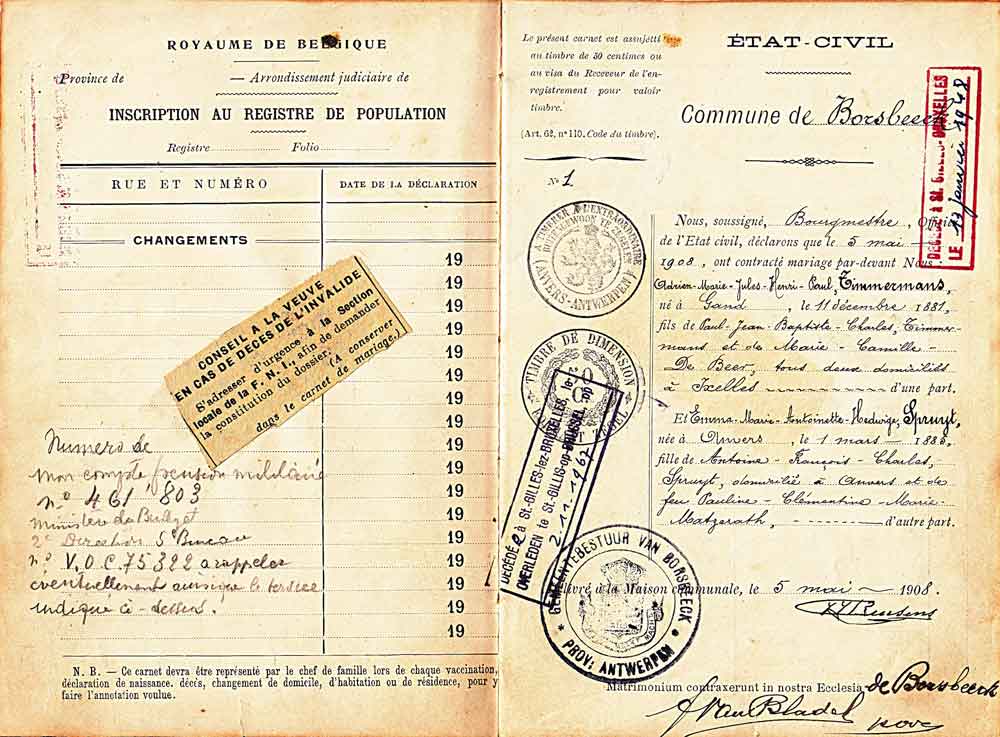 ROYAUME DE BELGIQUE
Province de — Arrondissement judiciaire de
INSCRIPTION AU REGISTRE DE POPULATION
Registre Folio
RUE ET NUMÉRO
DATE DE LA DÉCLARATION
CHANGEMENTS
19
19
19
19
19
19
19
19
19
19
19
19
19
19
19
19
19
CONSEIL A LA VEUVE
EN CAS DE DÉCÈS DE L'INVALIDE
S'adresser d'urgence à la Section
locale de la F. N. I., afin de demander
la constitution du dossier. (A conserver
dans le carnet de mariage.)
Numéro de
mon compte pension militaire
n° 461 803
Ministère du Budget
2e Direction 5e Bureau
n° V.O.C. 75322 a rappeler
eventuellement
indiqué ci-dessus.
N. B. — Ce carnet devra être représenté par le chef de famille lors de chaque vaccination,
déclaration de naissance. décès, changement de domicile, d'habitation ou de résidence, pour y
faire l'annotation voulue.
Le présent carnet est assujetti
au timbre de 50 centimes ou
au visa du Receveur de l'en-
registrement pour valoir
timbre.
(Art. 62, n° 110. Code du timbre).
ÉTAT-CIVIL
Commune de Borsbeeck
DÉCÉDÉ A ST. GILLES-BRUXELLES
LE 17 Janvier 1948
N° 1
A TIMBRER A L'EXTRAORDINAIRE
BUITENGEWOON TE ZEGELEN
(ANVERS-ANTWERPEN)
TIMBRE DE DIMENSION
Nous, soussigné, Bourgmestre, Officier
de l'Etat civil, déclarons que le 5 mai
1908, ont contracté mariage par-devant Nous :
Adrien-Marie-Jules-Henri-Paul, Timmermans,
né à Gand, le 11 décembre 1881,
fils de Paul-Jean-Baptiste-Charles, Timmer-
mans et de Marie-Camille-
De Beer, tous deux domiciliés
à Ixelles d'une part.
Et Emma-Marie-Antoinette-Hedwige, Spruyt,
née à Anvers, le 1 mars 1885,
fille de Antoine-François-Charles,
Spruyt, domicilié à Anvers et de
feu Pauline-Clémentine-Marie-
Matzerath, d'autre part.
DÉCÉDÉE à St-GILLES-lez-BRUXELLES, le
OVERLEDEN te St-GILLIS-op-BRUSSEL, op
2.11.1967
Délivré à la Maison communale, le 5 mai 1908.
GEMEENTEBESTUUR VAN BORSBEECK
PROV: ANTWERPEN
Matrimonium contraxerunt in nostra Ecclesia de Borsbeeck
J Van Bladel